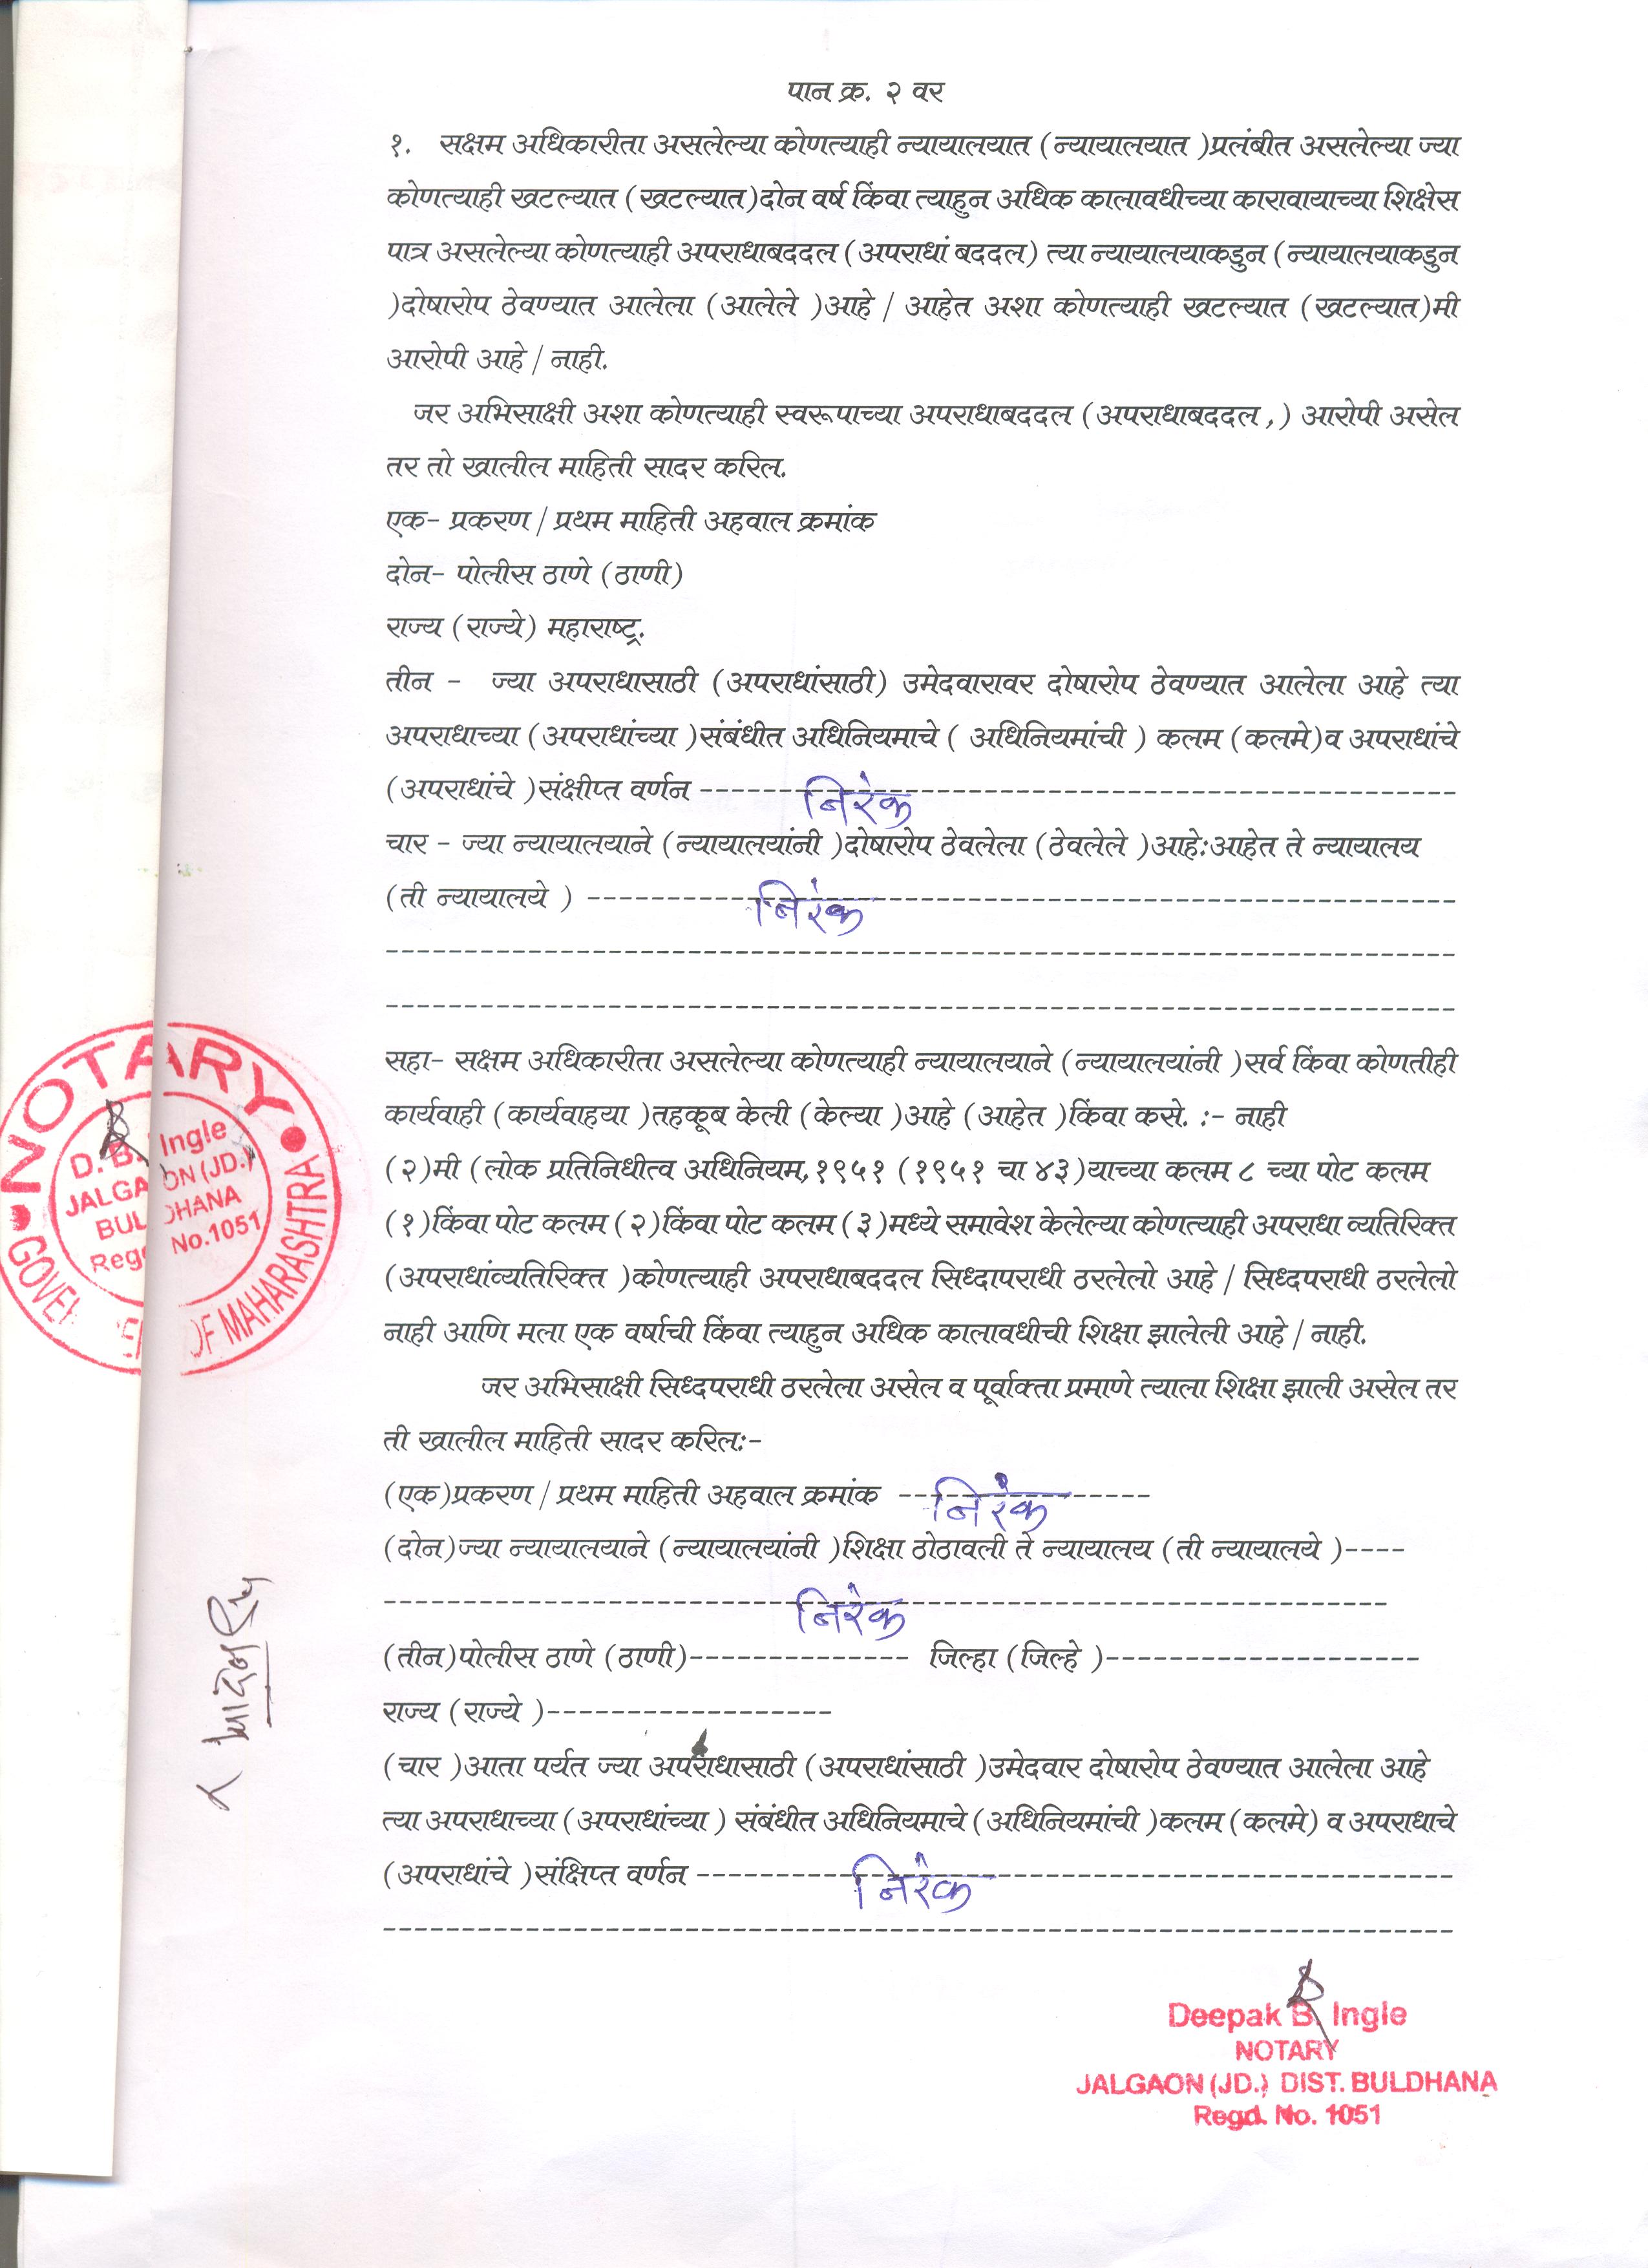 पान क्र. २ वर
१. सक्षम अधिकारीता असलेल्या कोणत्याही न्यायालयात (न्यायालयात )प्रलंबीत असलेल्या ज्या
कोणत्याही खटल्यात (खटल्यात)दोन वर्ष किंवा त्याहुन अधिक कालावधीच्या कारावायाच्या शिक्षेस
पात्र असलेल्या कोणत्याही अपराधाबददल (अपराधां बददल) त्या न्यायालयाकडुन (न्यायालयाकडुन
)दोषारोप ठेवण्यात आलेला (आलेले )आहे / आहेत अशा कोणत्याही खटल्यात (खटल्यात)मी
आरोपी आहे / नाही.
जर अभिसाक्षी अशा कोणत्याही स्वरूपाच्या अपराधाबददल (अपराधाबददल,) आरोपी असेल
तर तो खालील माहिती सादर करिल.
एक- प्रकरण / प्रथम माहिती अहवाल क्रमांक
दोन- पोलीस ठाणे (ठाणी)
राज्य (राज्ये) महाराष्ट्र.
तीन - ज्या अपराधासाठी (अपराधांसाठी) उमेदवारावर दोषारोप ठेवण्यात आलेला आहे त्या
अपराधाच्या (अपराधांच्या )संबंधीत अधिनियमाचे ( अधिनियमांची ) कलम (कलमे)व अपराधांचे
(अपराधांचे )संक्षीप्त वर्णन ---------- निरंक ----------
चार - ज्या न्यायालयाने (न्यायालयांनी )दोषारोप ठेवलेला (ठेवलेले )आहे:आहेत ते न्यायालय
(ती न्यायालये ) ---------- निरंक ----------
सहा- सक्षम अधिकारीता असलेल्या कोणत्याही न्यायालयाने (न्यायालयांनी )सर्व किंवा कोणतीही
कार्यवाही (कार्यवाहया )तहकूब केली (केल्या )आहे (आहेत )किंवा कसे. :- नाही
(२)मी (लोक प्रतिनिधीत्व अधिनियम,१९५१ (१९५१ चा ४३)याच्या कलम ८ च्या पोट कलम
(१)किंवा पोट कलम (२)किंवा पोट कलम (३)मध्ये समावेश केलेल्या कोणत्याही अपराधा व्यतिरिक्त
(अपराधांव्यतिरिक्त )कोणत्याही अपराधाबददल सिध्दापराधी ठरलेलो आहे / सिध्दपराधी ठरलेलो
नाही आणि मला एक वर्षाची किंवा त्याहुन अधिक कालावधीची शिक्षा झालेली आहे / नाही.
जर अभिसाक्षी सिध्दपराधी ठरलेला असेल व पूर्वाक्ता प्रमाणे त्याला शिक्षा झाली असेल तर
ती खालील माहिती सादर करिल:-
(एक)प्रकरण / प्रथम माहिती अहवाल क्रमांक ---- निरंक ----
(दोन)ज्या न्यायालयाने (न्यायालयांनी )शिक्षा ठोठावली ते न्यायालय (ती न्यायालये )----
---------- निरंक ----------
(तीन)पोलीस ठाणे (ठाणी)-------------- जिल्हा (जिल्हे )--------------------
राज्य (राज्ये )-------------------
(चार )आता पर्यत ज्या अपराधासाठी (अपराधांसाठी )उमेदवार दोषारोप ठेवण्यात आलेला आहे
त्या अपराधाच्या (अपराधांच्या ) संबंधीत अधिनियमाचे (अधिनियमांची )कलम (कलमे) व अपराधाचे
(अपराधांचे )संक्षिप्त वर्णन ---------- निरंक ----------
NOTARY
D. B. Ingle
JALGAON (JD.)
BULDHANA
Regd No.1051
OF MAHARASHTRA
Deepak B. Ingle
NOTARY
JALGAON (JD.) DIST. BULDHANA
Regd. No. 1051